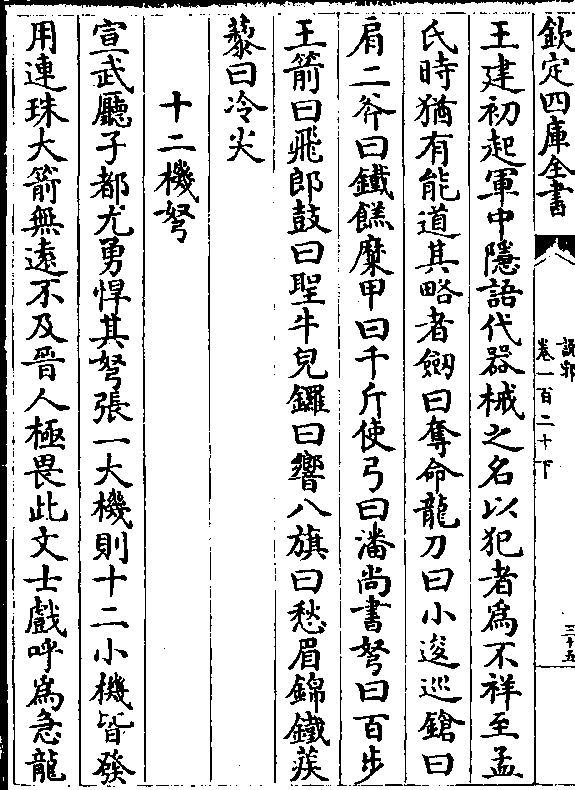 欽定四庫全書
說郛
卷一百二十下
三十五
王建初起軍中隱語代器械之名以犯者為不祥至孟
氏時猶有能道其略者劔曰奪命龍刀曰小逡巡鎗曰
肩二斧曰鐵餻糜甲曰千斤使弓曰潘尚書弩曰百步
王箭曰飛郎鼓曰聖牛兒鑼曰響八旗曰愁眉錦鐵蒺
藜曰冷尖
十二機弩
宣武廳子都尤勇悍其弩張一大機則十二小機皆發
用連珠大箭無遠不及晉人極畏此文士戲呼為急龍